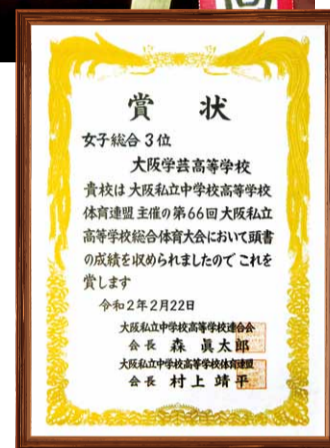 賞状
女子総合3位
大阪学芸高等学校
貴校は大阪私立中学校高等学校
体育連盟主催の第66回大阪私立
高等学校総合体育大会において頭書
の成績を収められましたのでこれを
賞します
令和2年2月22日
大阪私立中学校高等学校連合会
会長 森 眞太郎
大阪私立中学校高等学校体育連盟
会長 村上靖平